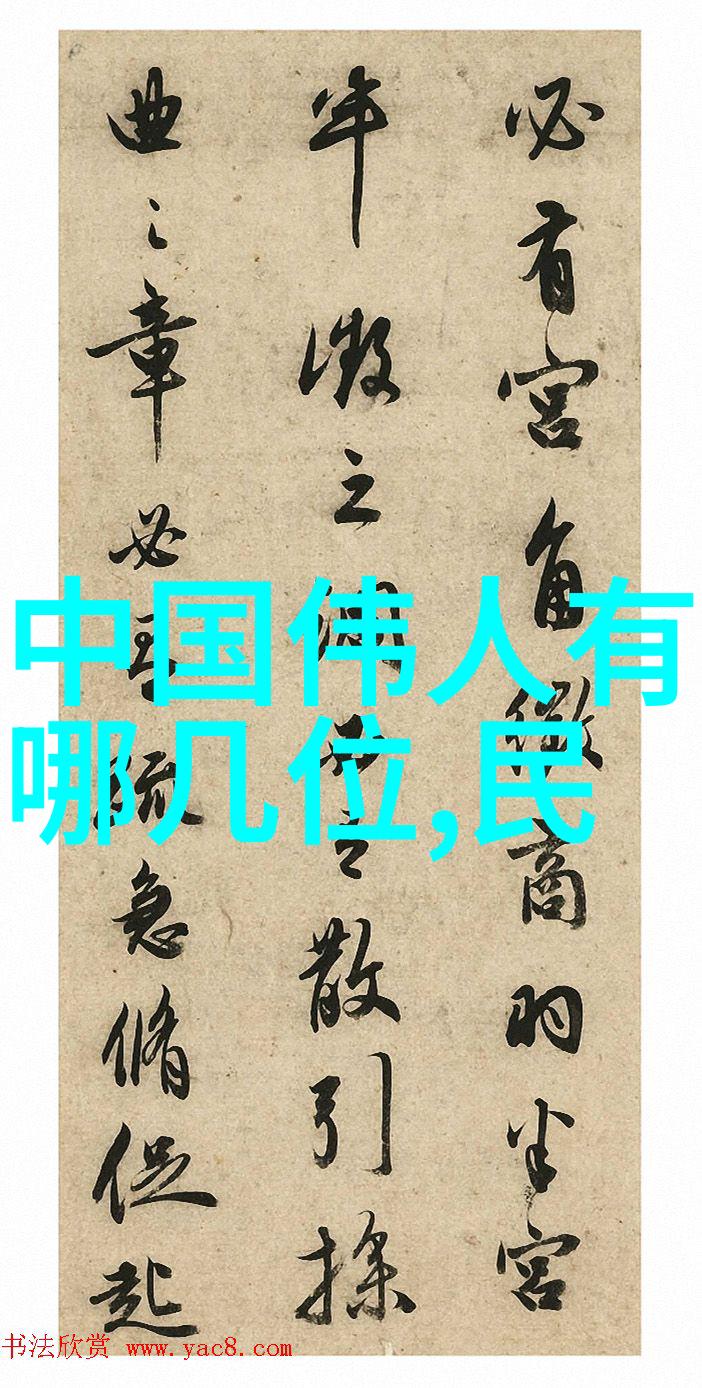 必有宫角徵商羽半宫
半徵之调而之散引操
曲之章必疏急脩促起
中国伟人有
哪几位,民
书法欣赏 www.yac8.com